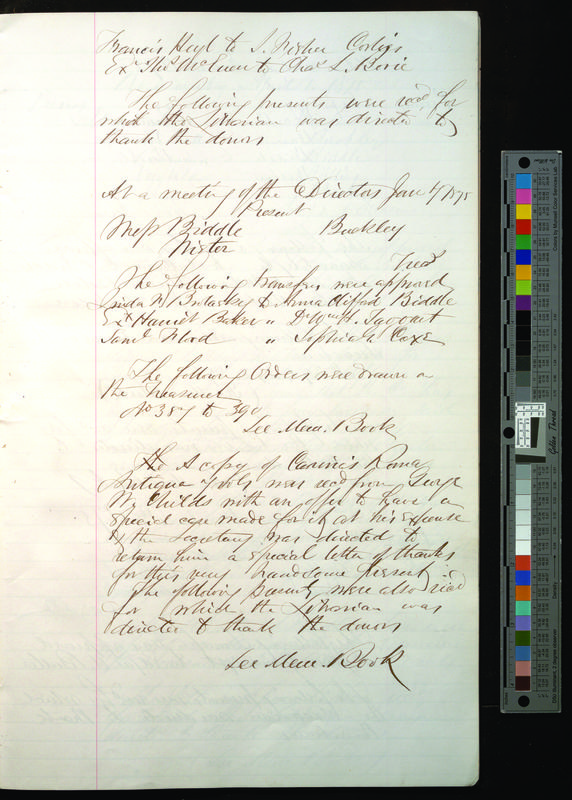 Francis Hoyt to J. Fisher Corlies
Ex Thos McEuen to Chas L. Borie
The following presents were recd for
which the Librarian was directed to
thank the donors
At a meeting of the Directors Jany 7 1875
Present
Mess Biddle Buckley
Wister
Treas
The following transfers were approved
Linda W to Anna Clifford Biddle
Ex Harriet Baker " Dr Wm H.
Saml Flood " Sophia Coxe
The following Orders were drawn on
the Treasurer
No 387 to 390
See Mem. Book
A copy of Canina's Roma
Antiqua vols was recd from George
W Childs with an offer to have a
special case made for it at his Expense
& the Secretary was directed to
return him a special letter of thanks
for this very handsome present
The following presents were also recd
for which the Librarian was
directed to thank the donors
See Mem. Book
Golden Thread